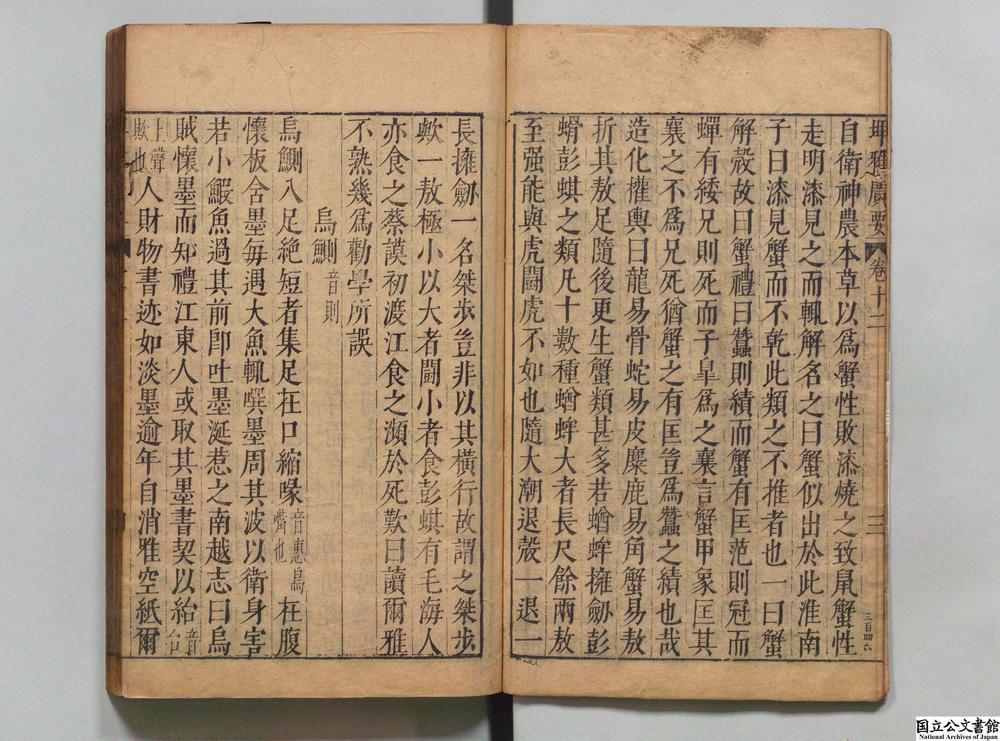 埤雅廣要
卷十二
三
自衛神農本草以爲蟹性敗漆燒之致鼠蟹性
走明漆見之而輒解名之曰蟹似出於此淮南
子曰漆見蟹而不乾此類之不推者也一曰蟹
解殼故曰蟹禮曰蠶則績而蟹有匡范則冠而
蟬有緌兄則死而子臯爲之襄言蟹甲象匡其
襄之不爲兄死猶蟹之有匡豈爲蠶之績也哉
造化權輿曰龍易骨蛇易皮麋鹿易角蟹易敖
折其敖足隨後更生蟹類甚多若蝤蛑擁劒彭
蜎彭蜞之類凡十數種蝤蛑大者長尺餘兩敖
至强能與虎鬪虎不如也隨大潮退殼一退一
長擁劒一名桀步豈非以其橫行故謂之桀步
歟一敖極小以大者鬪小者食彭蜞有毛海人
亦食之蔡謨初渡江食之瀕於死歎曰讀爾雅
不熟幾爲勸學所誤
烏鰂音則
烏鰂八足絶短者集足在口縮喙音惠鳥觜也在腹
懷板含墨每遇大魚輒噀墨周其波以衛身害
若小鰕魚過其前卽吐墨涎惹之南越志曰烏
賊懷墨而知禮江東人或取其墨書契以紿音台
上聲欺也人財物書迹如淡墨逾年自消雅空紙爾
国立公文書館
National Archives of Japan